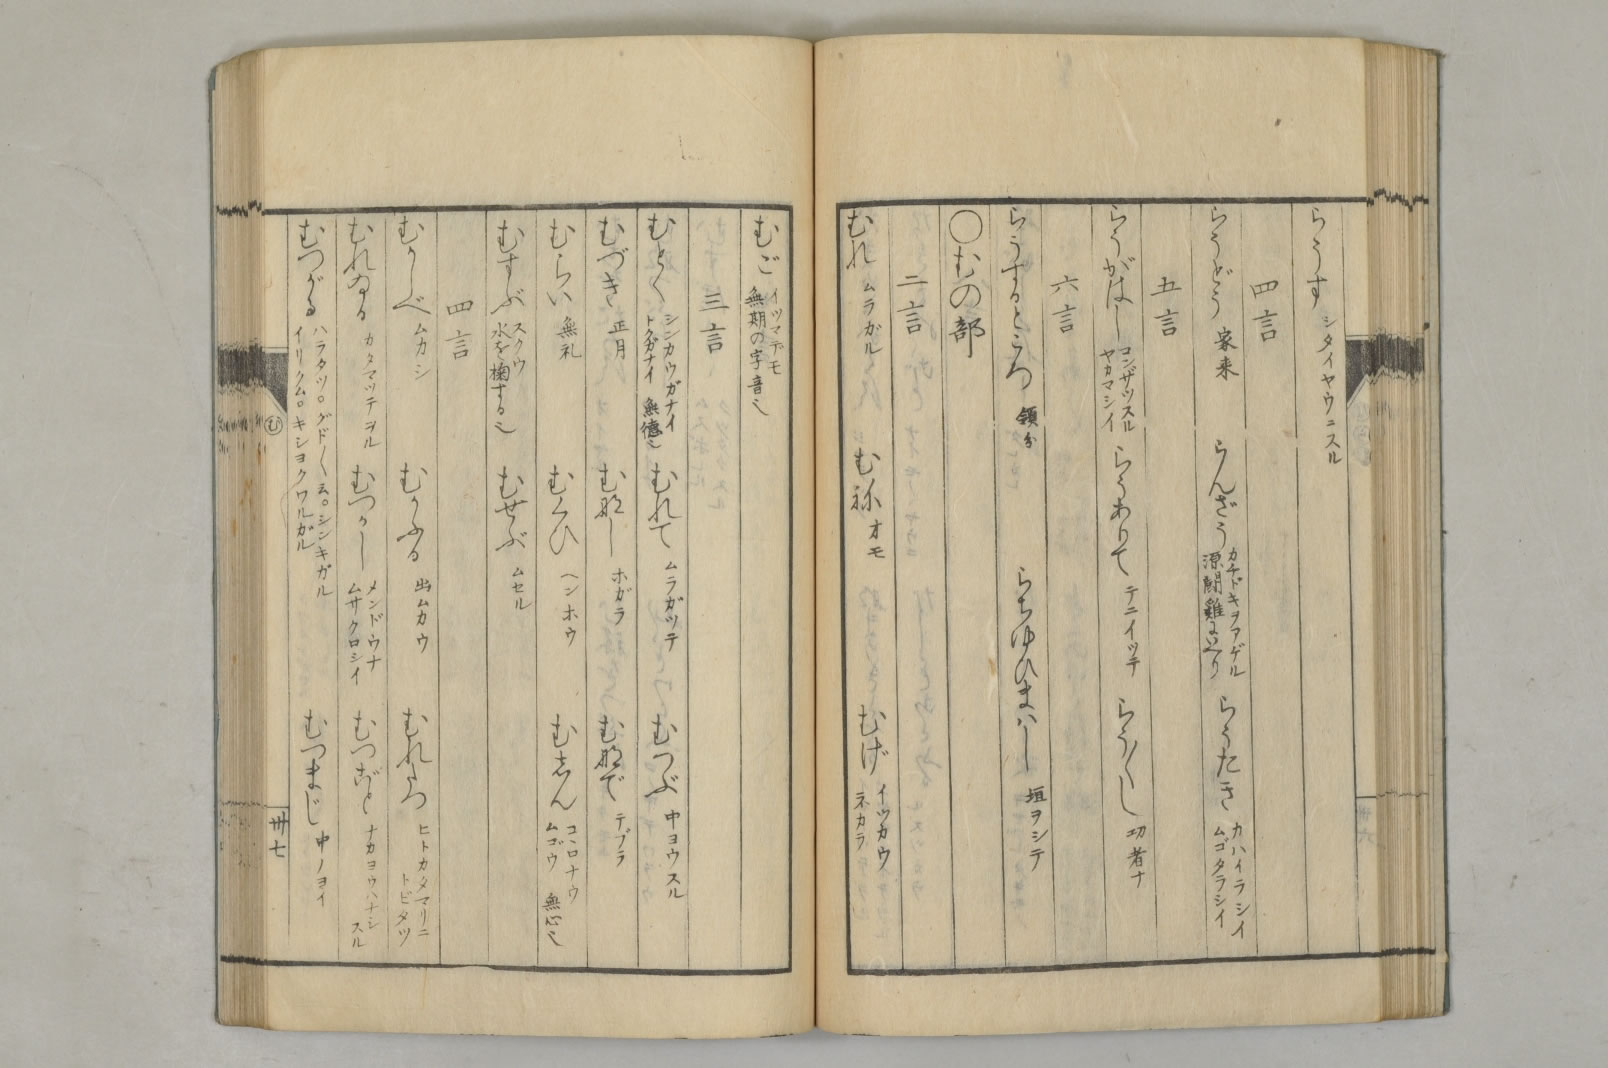 らうす シタイヤウニスル
四言
らうどう 家来 らんざう カチドキヲアゲル 源闘雞ニ見エタリ らうたき カハイラシイ ムゴタラシイ
五言
らうがはし コンザツスル ヤカマシイ らうありて テニイツテ らう〳〵し 功者ナ
六言
らうするところ 領分 らちゆひまはし 垣ヲシテ
〇むの部
二言
むれ ムラガル むね オモ むげ イツカウ ネカラ
むご イツマデモ 無期の字音也
三言
むとく シンカウガナイ トクガナイ 無徳也 むれて ムラガツテ むつぶ 中ヨウスル
むづき 正月 むなし ホガラ むなで テブラ
むらい 無礼 むくひ ヘンホウ むしん コヽロナウ ムゴウ 無心也
むすぶ スクウ 水を掬する也 むせぶ ムセル
四言
むかしべ ムカシ むかふる 出ムカウ むれたつ ヒトカタマリニ トビタツ
むれゐる カタマツテヲル むつかし メンドウナ ムサクロシイ むつごと ナカヨウハナシスル
むつがる ハラタツ。グド〳〵云。シンキガル イリクム。キシヨクワルガル むつまじ 中ノヨイ
む
卅七